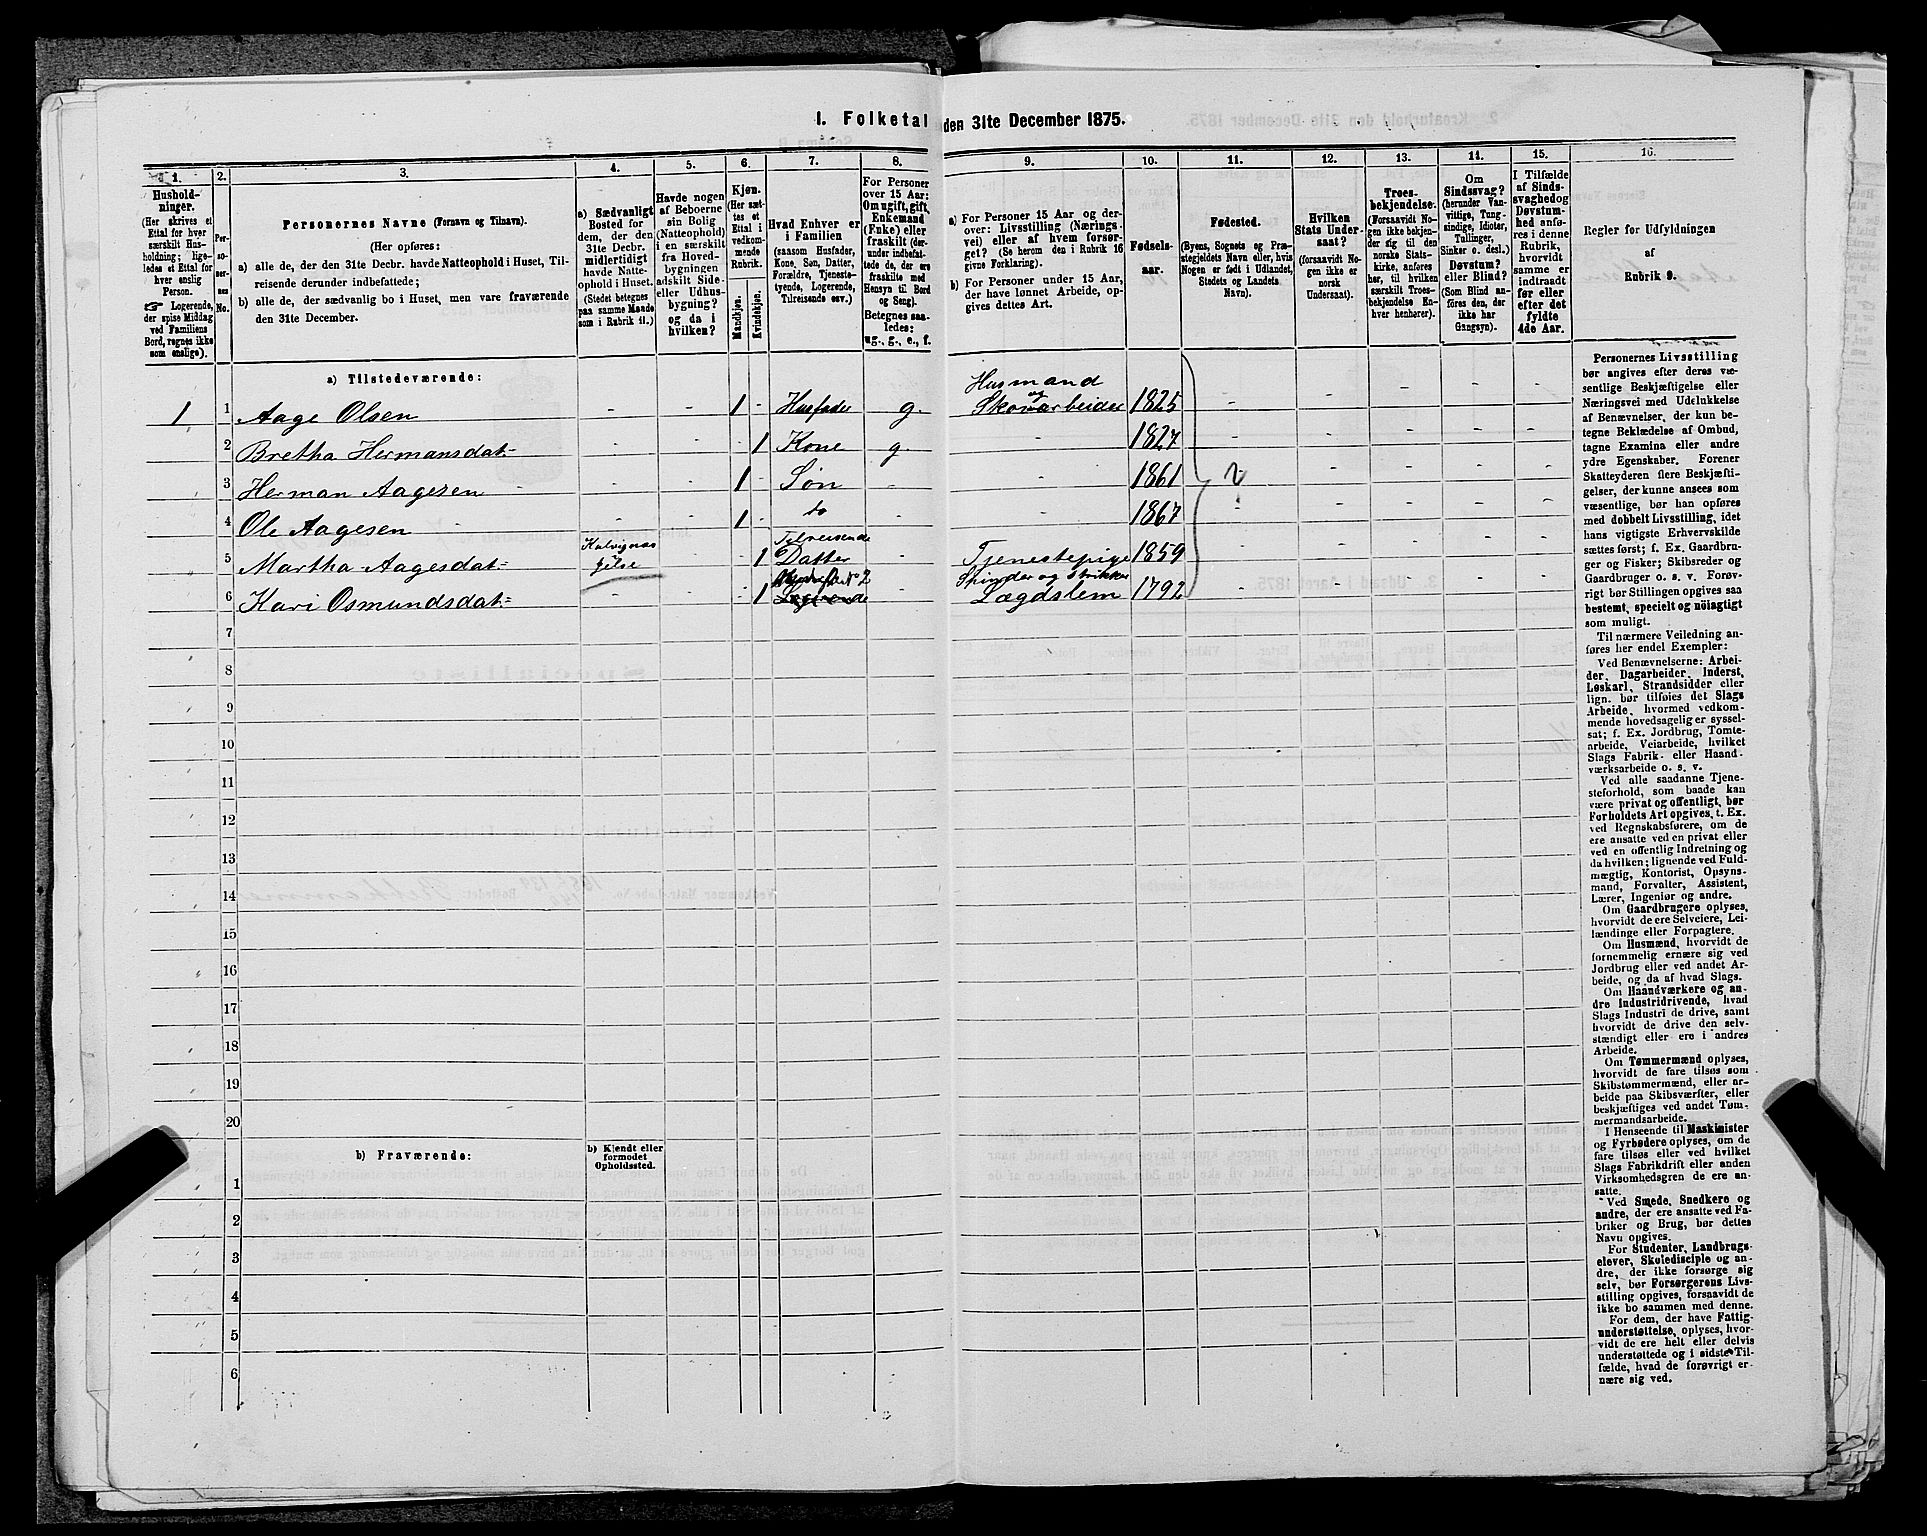 1. Folketal den 31te December 1875.
1.
Hushold-
ninger.
(Her skrives et
Ettal for hver
særskilt Hus-
holdning; lige-
ledes et Ettal for
hver enslig
Person.
☞ Logerende,
der spise Middag
ved Familiens
Bord, regnes ikke
som enslige).
2.
Per-
so-
ner-
nes
No.
3.
Personernes Navne (Fornavn og Tilnavn).
(Her opføres:
a) alle de, der den 31te Decbr. havde Natteophold i Huset, Til-
reisende derunder indbefattede;
b) alle de, der sædvanlig bo i Huset, men vare fraværende
den 31te December.
4.
a) Sædvanligt
Bosted for
dem, der den
31te Decbr.
midlertidigt
havde Natte-
ophold i Huset.
(Stedet betegnes
paa samme Maade
som i Rubrik 11.)
5.
Havde nogen
af Beboerne
sin Bolig
(Natteophold)
i en særskilt
fra Hoved-
bygningen
adskilt Side-
eller Udhus-
bygning?
og da i
hvilken?
6.
Kjøn.
(Her sæt-
tes et
Ettal i
vedkom-
mende
Rubrik.
Mandkjøn.
Kvindekjøn.
7.
Hvad Enhver er
i Familien
(saasom Husfader,
Kone, Søn, Datter,
Forældre, Tjeneste-
tyende, Logerende,
Tilreisende osv.)
8.
For Personer
over 15 Aar:
Om ugift, gift,
Enkemand
(Enke) eller
fraskilt (der-
under indbefat-
tede de, der ere
fraskilte med
Hensyn til Bord
og Seng).
Betegnes saa-
ledes:
ug., g., e., f.
9.
a) For Personer 15 Aar og der-
over: Livsstilling (Nærings-
vei) eller af hvem forsør-
get? (Se herom den i Rubrik 16
givne Forklaring).
b) For Personer under 15 Aar,
der have lønnet Arbeide, op-
gives dettes Art.
10.
Fødsels-
aar.
11.
Fødested.
(Byens, Sognets og Præ-
stegjeldets Navn eller, hvis
Nogen er født i Udlandet,
Stedets og Landets
Navn).
12.
Hvilken
Stats Under-
saat?
(forsaavidt No-
gen ikke er
norsk
Undersaat).
13.
Troes-
bekjendelse.
(Forsaavidt No-
gen ikke bekjen-
der sig til den
norske Stats-
kirke, anføres
her, til hvilken
særskilt Troes-
bekjendelse En-
hver henhører).
14.
Om
Sindssvag?
(herunder Van-
vittige, Tung-
sindige, Idioter,
Tullinger,
Sinker o. desl.)
Døvstum?
eller Blind?
(Som Blind an-
føres den, der
ikke har
Gangsyn).
15.
I Tilfælde
af Sinds-
svaghed og
Døvstum-
hed anfø-
res i denne
Rubrik,
hvorvidt
samme er
indtraadt
før eller
efter det
fyldte
4de Aar.
16.
Regler for Udfyldningen
af
Rubrik 9.
a) Tilstedeværende:
1 1 Aage Olsen - - 1 Husfader g. Husmand og Skovarbeider 1825 - - - - -
2 Bretha Hermansdat: - - 1 Kone g. - 1827 - - - - -
3 Herman Aagesen - - 1 - Søn - - 1861 - - - -
4 Ole Aagesen - - 1 - do - - 1867 - - - -
5 Martha Aagesdat: - 1 Tilreisende Datter - Tjenestepige 1859 - - - -
6 Kari Osmundsdat: - - 1 Logerende - Spinder og Strikker Lægdslem 1792 - - - -
7
8
9
10
11
12
13
14
15
16
17
18
19
20
b) Fraværende:
b) Kjendt eller
formodet
Opholdssted.
1
2
3
4
5
6
Personernes Livsstilling
bør angives efter deres væ-
sentlige Beskjæftigelse eller
Næringsvei med Udelukkelse
af Benævnelser, der kun be-
tegne Beklædelse af Ombud,
tagne Examina eller andre
ydre Egenskaber. Forener
Skatteyderen flere Beskjæfti-
gelser, der kunne ansees som
væsentlige, bør han opføres
med dobbelt Livsstilling, idet
hans vigtigste Erhvervskilde
sættes først; f. Ex. Gaardbru-
ger og Fisker; Skibsreder og
Gaardbruger o. s. v. Forøv-
rigt bør Stillingen opgives saa
bestemt, specielt og nöiagtigt
som muligt.
Til nærmere Veiledning an-
føres her endel Exempler:
Ved Benævnelserne: Arbei-
der, Dagarbeider, Inderst,
Løskarl, Strandsidder eller
lign. bør tilføies det Slags
Arbeide, hvormed vedkom-
mende hovedsagelig er syssel-
sat; f. Ex. Jordbrug, Tomte-
arbeide, Veiarbeide, hvilket
Slags Fabrik- eller Haand-
værksarbeide o. s. v.
Ved alle saadanne Tjene-
steforhold, som baade kan
være privat og offentligt, bør
Forholdets Art opgives, t. Ex.
ved Regnskabsførere, om de
ere ansatte ved en privat eller
ved en offentlig Indretning og
da hvilken; lignende ved Fuld-
mægtig, Kontorist, Opsyns-
mand, Forvalter, Assistent,
Lærer, Ingeniør og andre.
Om Gaardbrugere oplyses,
hvorvidt de ere Selveiere, Lei-
lændinge eller Forpagtere.
Om Husmænd, hvorvidt de
fornemmelig ernære sig ved
Jordbrug eller ved andet Ar-
beide, og da af hvad Slags.
Om Haandværkere og an-
dre Industridrivende, hvad
Slags Industri de drive, samt
hvorvidt de drive den selv-
stændigt eller ere i andres
Arbeide.
Om Tømmermænd oplyses,
hvorvidt de fare tilsøs som
Skibstømmermænd, eller ar-
beide paa Skibsværfter, eller
beskjæftiges ved andet Tøm-
mermandsarbeide.
I Henseende til Maskinister
og Fyrbødere oplyses, om de
fare tilsøs eller ved hvilket
Slags Fabrikdrift eller anden
Virksomhedsgren de ere an-
satte.
Ved Smede, Snedkere og
andre, der ere ansatte ved Fa-
briker og Brug, bør dettes
Navn opgives.
For Studenter, Landbrugs-
elever, Skoledisciple og an-
dre, der ikke forsørge sig
selv, bør Forsørgerens Livs-
stilling opgives, forsaavidt de
ikke bo sammen med denne.
For dem, der have Fattig-
understøttelse, oplyses, hvor-
vidt de ere helt eller delvis
understøttede og i sidste Til-
fælde, hvad de forøvrigt er-
nære sig ved.